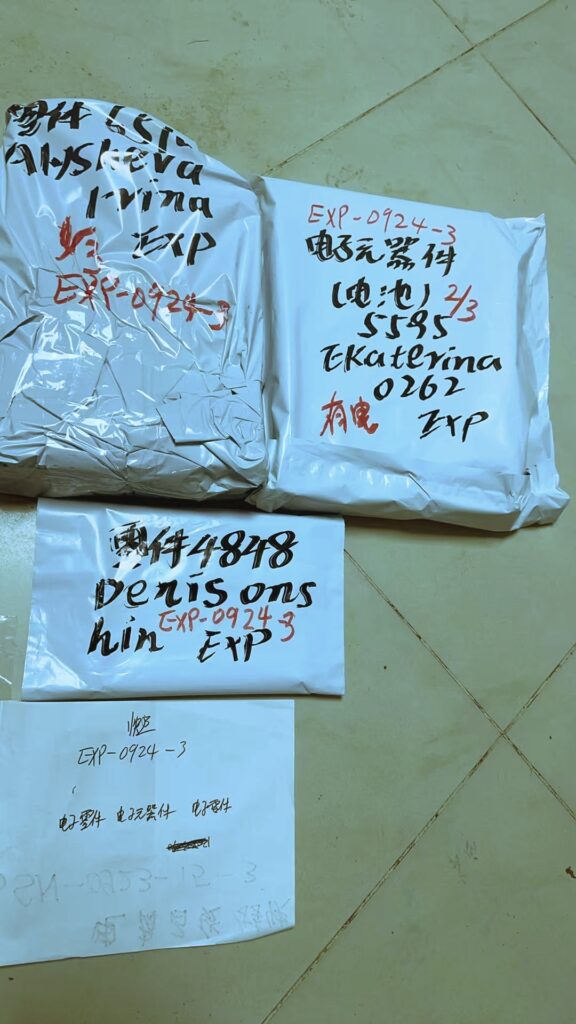 零件
Alysheva
Irina
EXP
EXP-0924-3
EXP-0924-3
电子元器件
(电池) 2/3
5595
EKaterina
0262
有电 EXP
零件4848
Denis ons
hin EXP-0924-3
EXP
EXP-0924-3
电子零件 电子元器件 电子零件
SN-0923-15-3